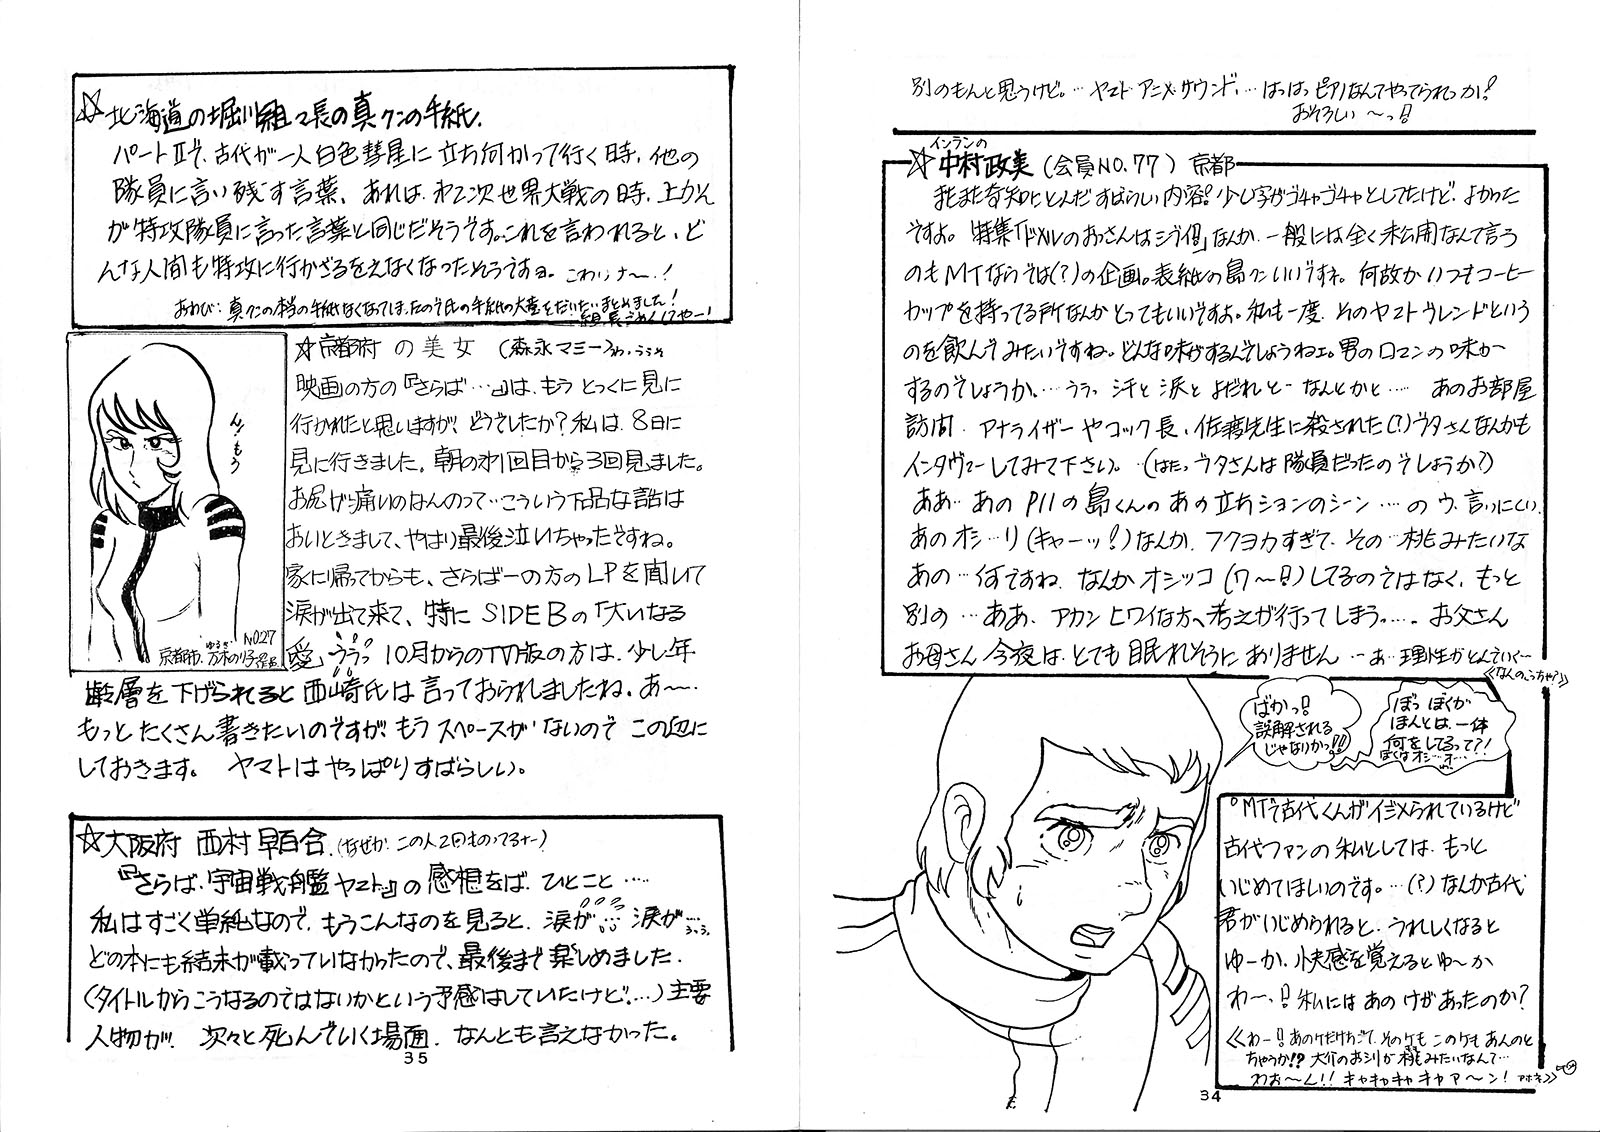 別のもんと思うけど。… ヤマト アニメ・サウンド、… はっはっ ピアノなんてやってられっか!
おそろしい 〜っ!!
インランの
☆中村政美 (会員NO.77) 京都
またまた奇知にとんだすばらしい内容!少し字がゴチャゴチャとしてたけど、よかった
ですよ。特集「ドメルのおっさんはシブイ個」なんか、一般には全く未公開なんて言う
のもMTならでは(?)の企画。表紙の島クンいいですネ。何故かいつもコーヒー
カップを持ってる所なんかとってもいいですよ。私も一度、そのヤマトブレンドという
のを飲んでみたいですね。どんな味がするんでしょうねェ。男のロマンの味か
するのでしょうか。… ううっ 汗と涙とよだれと… なんとかと…… あのお部屋
訪問、アナライザーやコック長、佐渡先生に殺された(?)ブタさんなんかも
インタヴューしてみて下さい。…(はたっ ブタさんは隊員だったのでしょうか?)
ああ… あの P11の島くんの あの立ちションのシーン …… の ウ、言いにくい
あの オシ…リ(キャーッ!)なんか、フクヨカすぎて、その… 桃みたいな
あの… 何ですね、なんか オシッコ(ワ〜!!)してるのではなく、もっと
別の …ああ、アカン ヒワイな方へ考えが行ってしまう…… お父さん
お母さん 今夜は、とても 眠れそうに ありません …あ… 理性がとんでいく〜
《なんのこっちゃ?》
ばかっ!!
誤解される
じゃないかっ!!
ぼっ ぼくが
ほんとは、一体
何をしてるって?!
ぼくはオシ…オ…
°MTで古代くんがイジメられているけど
古代ファンの私としては、もっと
いじめてほしいのです。…(?)なんか古代
君がいじめられると、うれしくなると
ゆーか、快感を覚えるとゆ〜か
わー、!! 私にはあのけがあったのか?
《わー!! あのケだけちごて、そのケも このケも あんのと
ちゃうか!? 大介のお尻が桃みたいなんて…
わぉ〜ん!! キャキャキャキャア〜ン! アホネ》
34
☆北海道の堀川組々長の真クンの手紙.
パートⅡで、古代が一人白色彗星に立ち向かって行く時、他の
隊員に言い残す言葉、あれは、第二次世界大戦の時、上かん
が特攻隊員に言った言葉と同じだそうです。これを言われると、ど
んな人間も特攻に行かざるをえなくなったそうですョ。こわいナ〜、!
おわび: 真クンの本当の手紙なくなってしまったので氏の手紙の大意をだいたいまとめました!
☆京都府の美女 (森永マミー)
映画の方の『さらば…』は、もう とっくに見に
行かれたと思いますが、どうでしたか?私は、8日に
見に行きました。朝の第1回目から3回見ました。
お尻が痛いのなんのって…こういう下品な話は
おいときまして、やはり最後泣いちゃったですね。
家に帰ってからも、さらばーの方のLPを聞いて
涙が出て来て、特にSIDE Bの「大いなる
愛」ううっ 10月からのTV版の方は、少し年
齢層を下げられると西崎氏は言っておられましたね。あ〜…
もっとたくさん書きたいのですが、もう スペースがないので この辺に
しておきます。 ヤマトはやっぱりすばらしい。
ん、もう
NO27
京都市、万木のり子
☆大阪府 西村 早百合.(なぜか、この人2回ものってるナー)
『さらば、宇宙戦艦ヤマト』の感想をば、ひとこと……
私はすごく単純なので、もうこんなのを見ると、涙が… 涙が…
どの本にも結末が載っていなかったので、最後まで楽しめました.
(タイトルからこうなるのではないかという予感はしていたけど…)主要
人物が、次々と死んでいく場面、なんとも言えなかった。
35